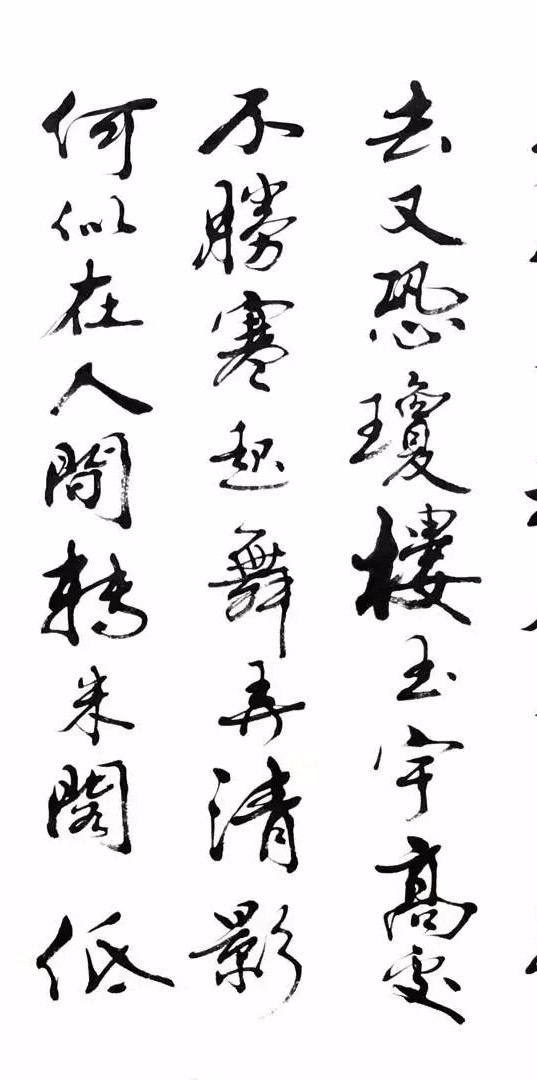 去又恐瓊樓玉宇高處
不勝寒起舞弄清影
何似在人間轉朱閣低